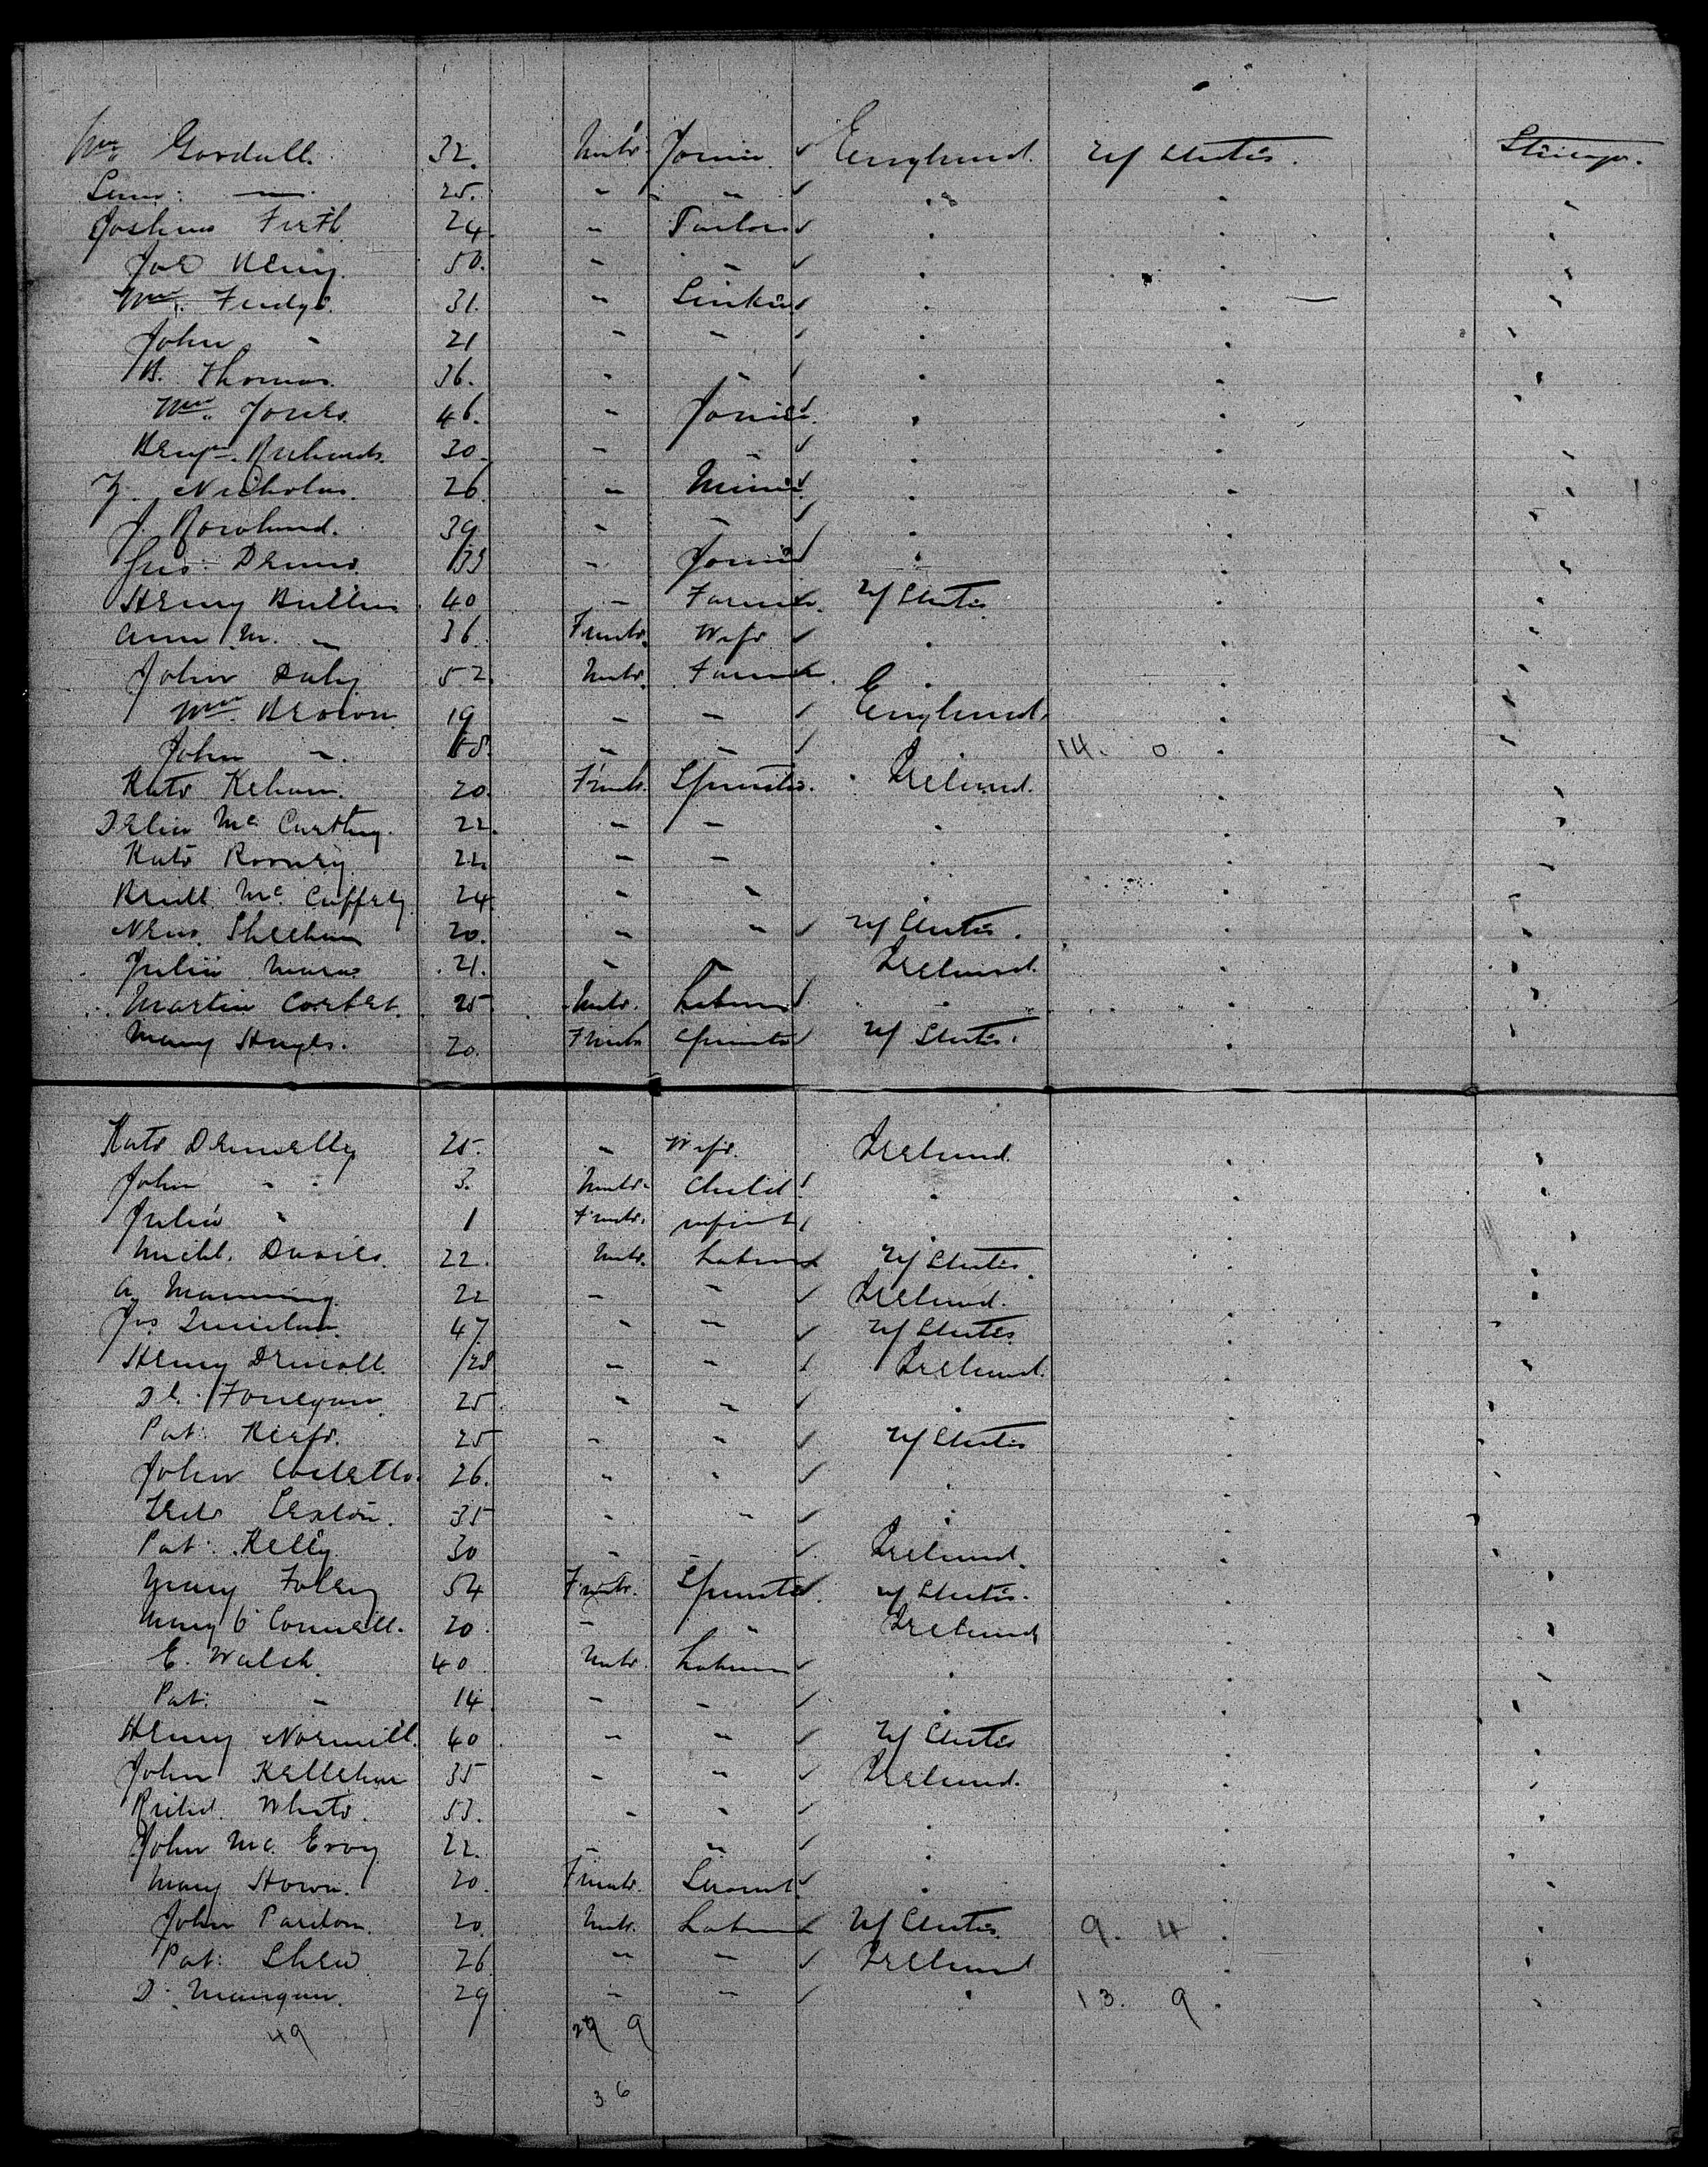 Wm Goodall. 32. Male Joiner ✓ England. U/ States. Steerage.
Saml: — 25. " " ✓ " " "
Joshua Firth 24. " Tailor ✓ " " "
50. " " ✓ " " "
Wm. Fudge. 31. " ✓ " " "
John " 21 " " ✓ " " "
Thomas. 36. " " ✓ " " "
Wm. Jones. 46. " Joiner ✓ " " "
Benjn. Richards. 30. " " ✓ " "
Nicholas. 26 " Miner ✓ " " "
J. Rowland. 39 " " ✓ " " "
Jas: Dennis 33 " Joiner ✓ " " "
Henry Bullen 40 " Farmer. U/ States " "
Ann M. " 36. Female. Wife ✓ " " "
John Daly 52. Male. Farmer. " " "
Wm. Brown 19 " " ✓ England. " "
John " 18. " " ✓ " 14. 0 " "
Kate 20. Female. Spinster. Ireland. " "
Delia Mc Carthy. 22. " " " " "
Kate Rooney 22. " " " " "
Mc Caffrey 24. " " " " "
Sheehan 20. " " ✓ U/ States. " "
Julia Mara 21. " " Ireland. " "
Martin Corbet. 25 Male. Labourer " " "
Mary Hughs. 20. Female Spinster U/ States. " "
Kate Dennelly 25. " Wife. Ireland. " "
John " 3. Male. Child. " " "
Julia " 1 Female. infant " " "
Michl. Davies. 22. Male. Labourer U/ States. " "
A. Manning. 22 " " ✓ Ireland. " "
Jas Quinlan. 47 " " ✓ U/ States. " "
Henry 28 " " ✓ Ireland. " "
25. " " ✓ " " "
Pat: Keefe. 25 " " ✓ U/ States " "
John Costello. 26. " " ✓ " " "
Sexton. 35 " " ✓ " " "
Pat: Kelly 30 " " ✓ Ireland. " "
Mary Foley 54 Female. Spinster. U/ States. " "
Mary O'Connell. 20. " " Ireland " "
E. Walsh. 40. Male. Labourer ✓ " " "
Pat: " 14. " " ✓ " " "
Henry 40 " " ✓ U/ States " "
John Kelleher 35 " " ✓ Ireland. " "
Richd. White. 53. " " ✓ " " "
John Mc. Evoy 22. " " ✓ " " "
Mary 20. Female. Servant ✓ " " "
John Pardon 20. Male. Labourer U/ States. 9. 4 " "
Pat: Shea 26 " " ✓ Ireland " "
D. Mangan. 29 " " ✓ " 13. 9 " "
49 29 9
36